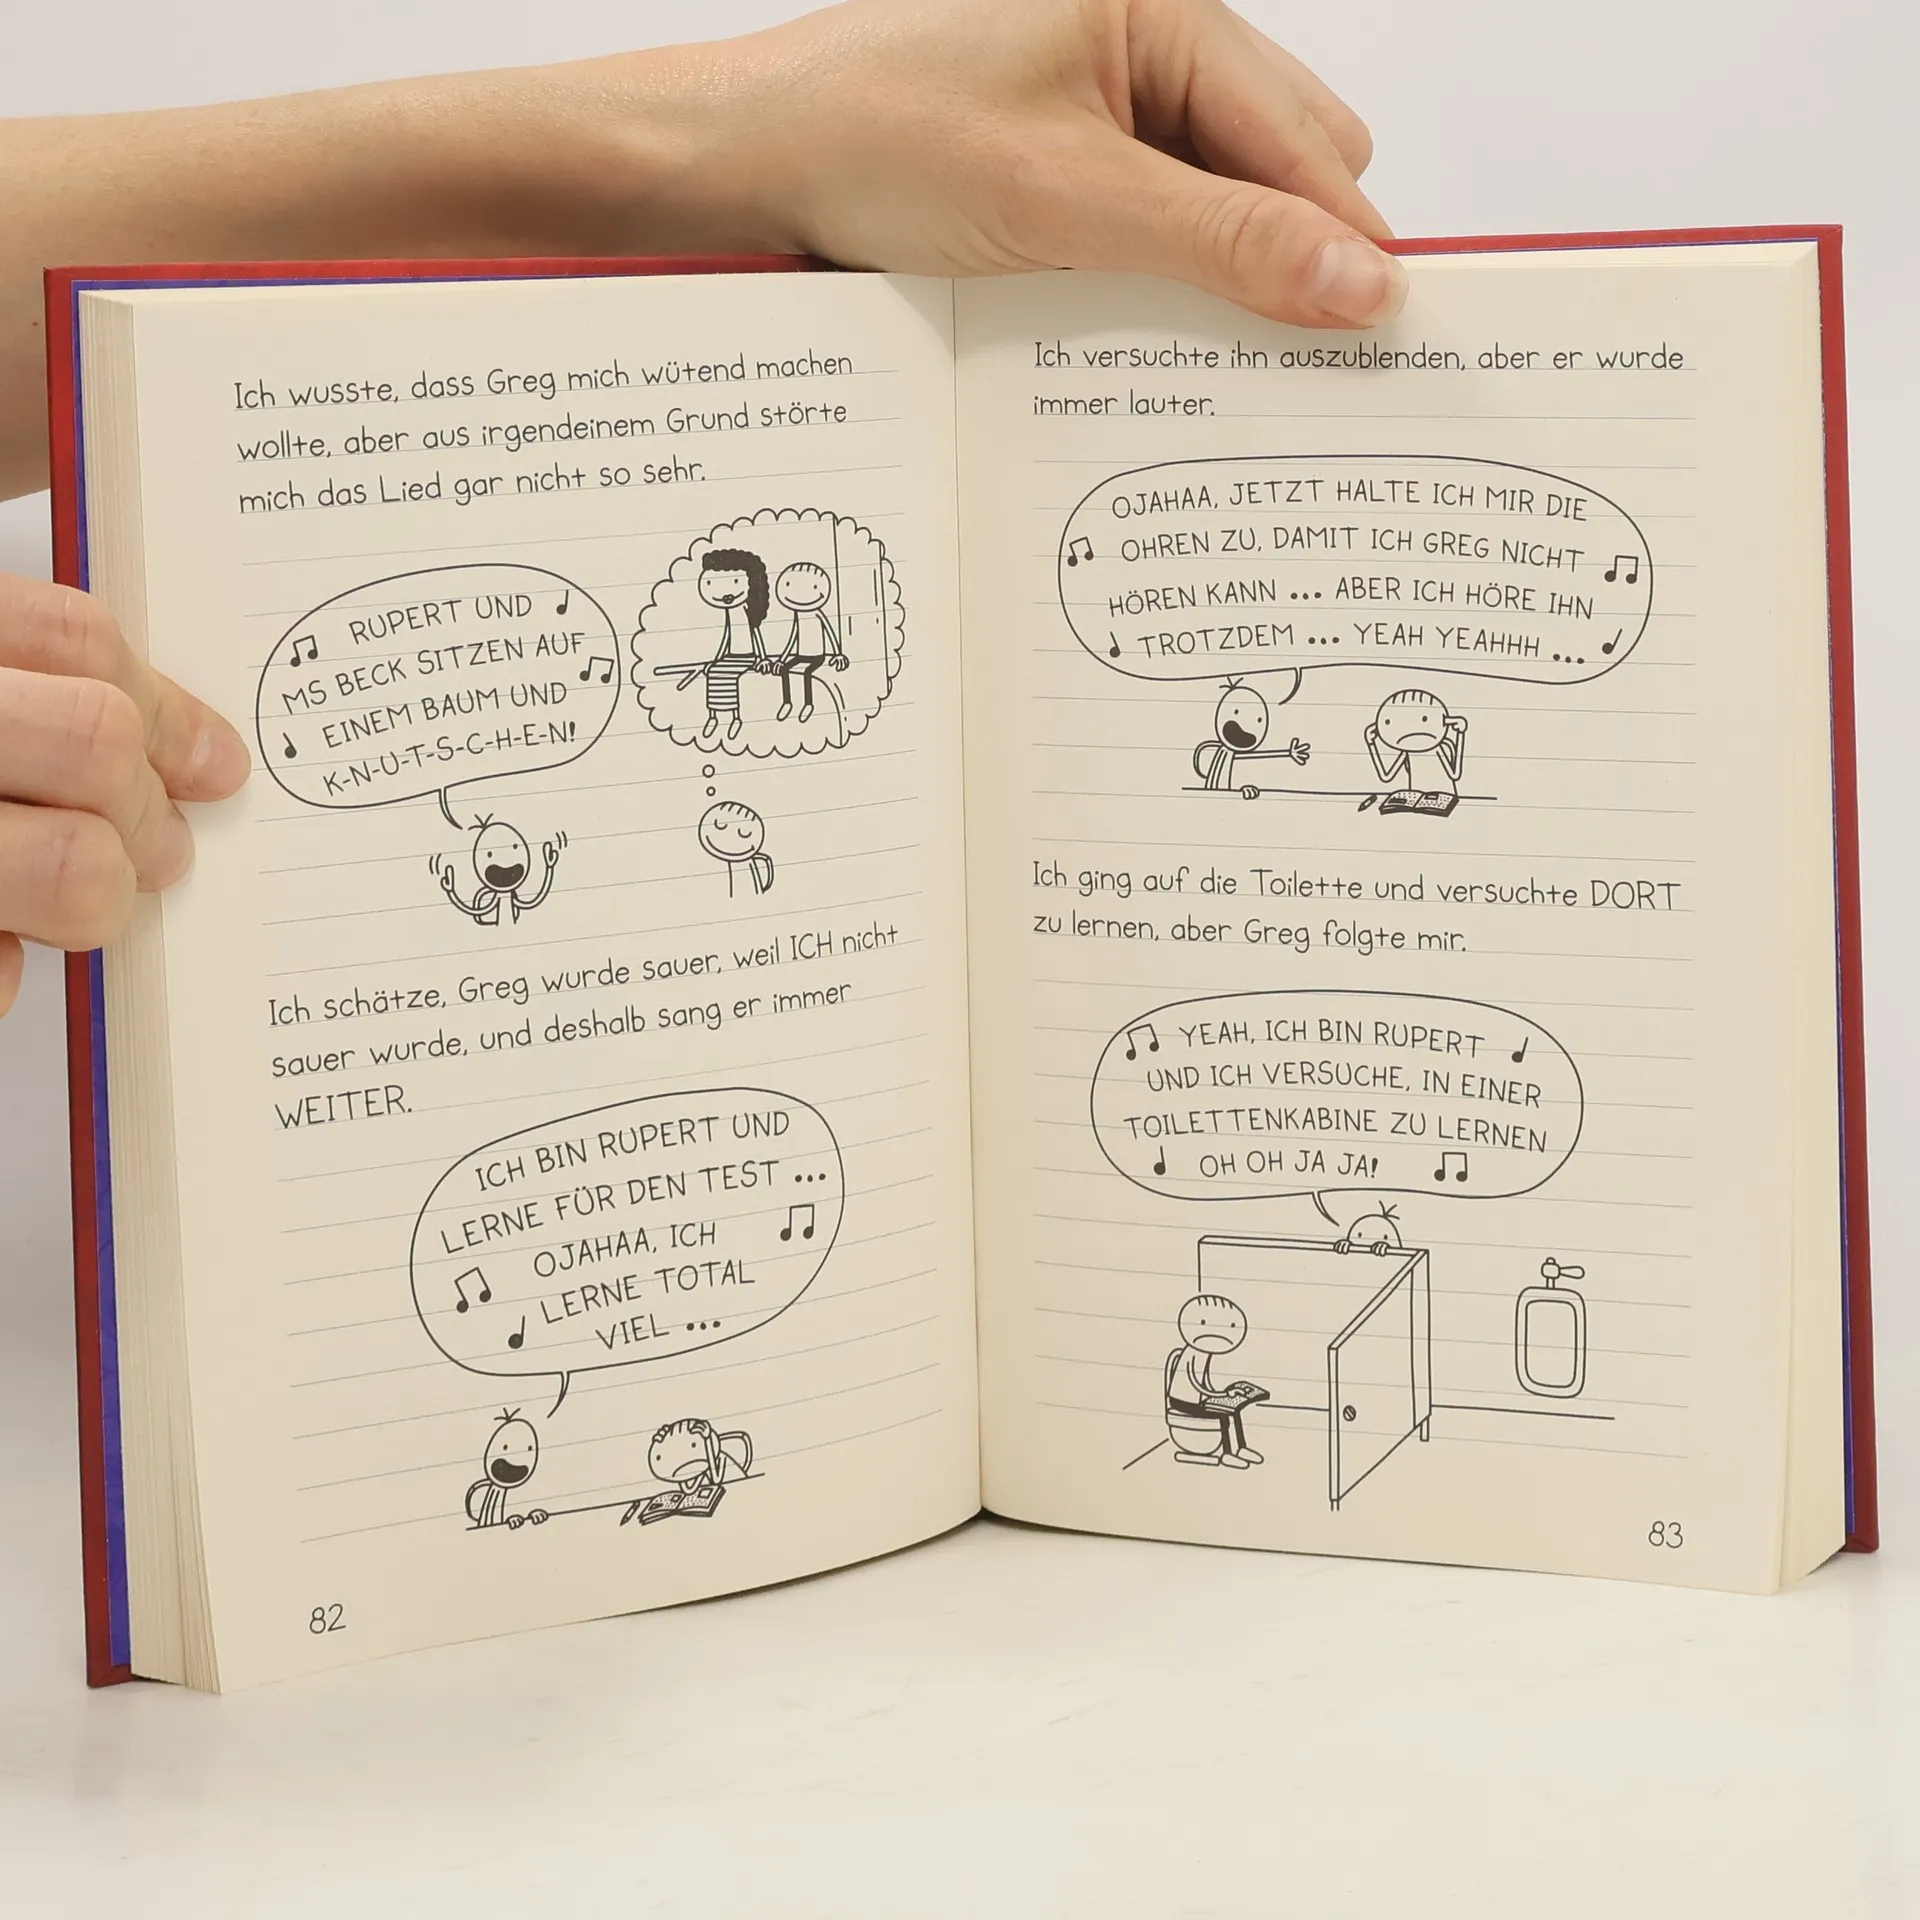 Ich wusste, dass Greg mich wütend machen
wollte, aber aus irgendeinem Grund störte
mich das Lied gar nicht so sehr.
RUPERT UND
MS BECK SITZEN AUF
EINEM BAUM UND
K-N-U-T-S-C-H-E-N!
Ich schätze, Greg wurde sauer, weil ICH nicht
sauer wurde, und deshalb sang er immer
WEITER.
ICH BIN RUPERT UND
LERNE FÜR DEN TEST ...
OJAHAA, ICH
LERNE TOTAL
VIEL ...
82
Ich versuchte ihn auszublenden, aber er wurde
immer lauter.
OJAHAA, JETZT HALTE ICH MIR DIE
OHREN ZU, DAMIT ICH GREG NICHT
HÖREN KANN ... ABER ICH HÖRE IHN
TROTZDEM ... YEAH YEAHHH ...
Ich ging auf die Toilette und versuchte DORT
zu lernen, aber Greg folgte mir.
YEAH, ICH BIN RUPERT
UND ICH VERSUCHE, IN EINER
TOILETTENKABINE ZU LERNEN
OH OH JA JA!
83